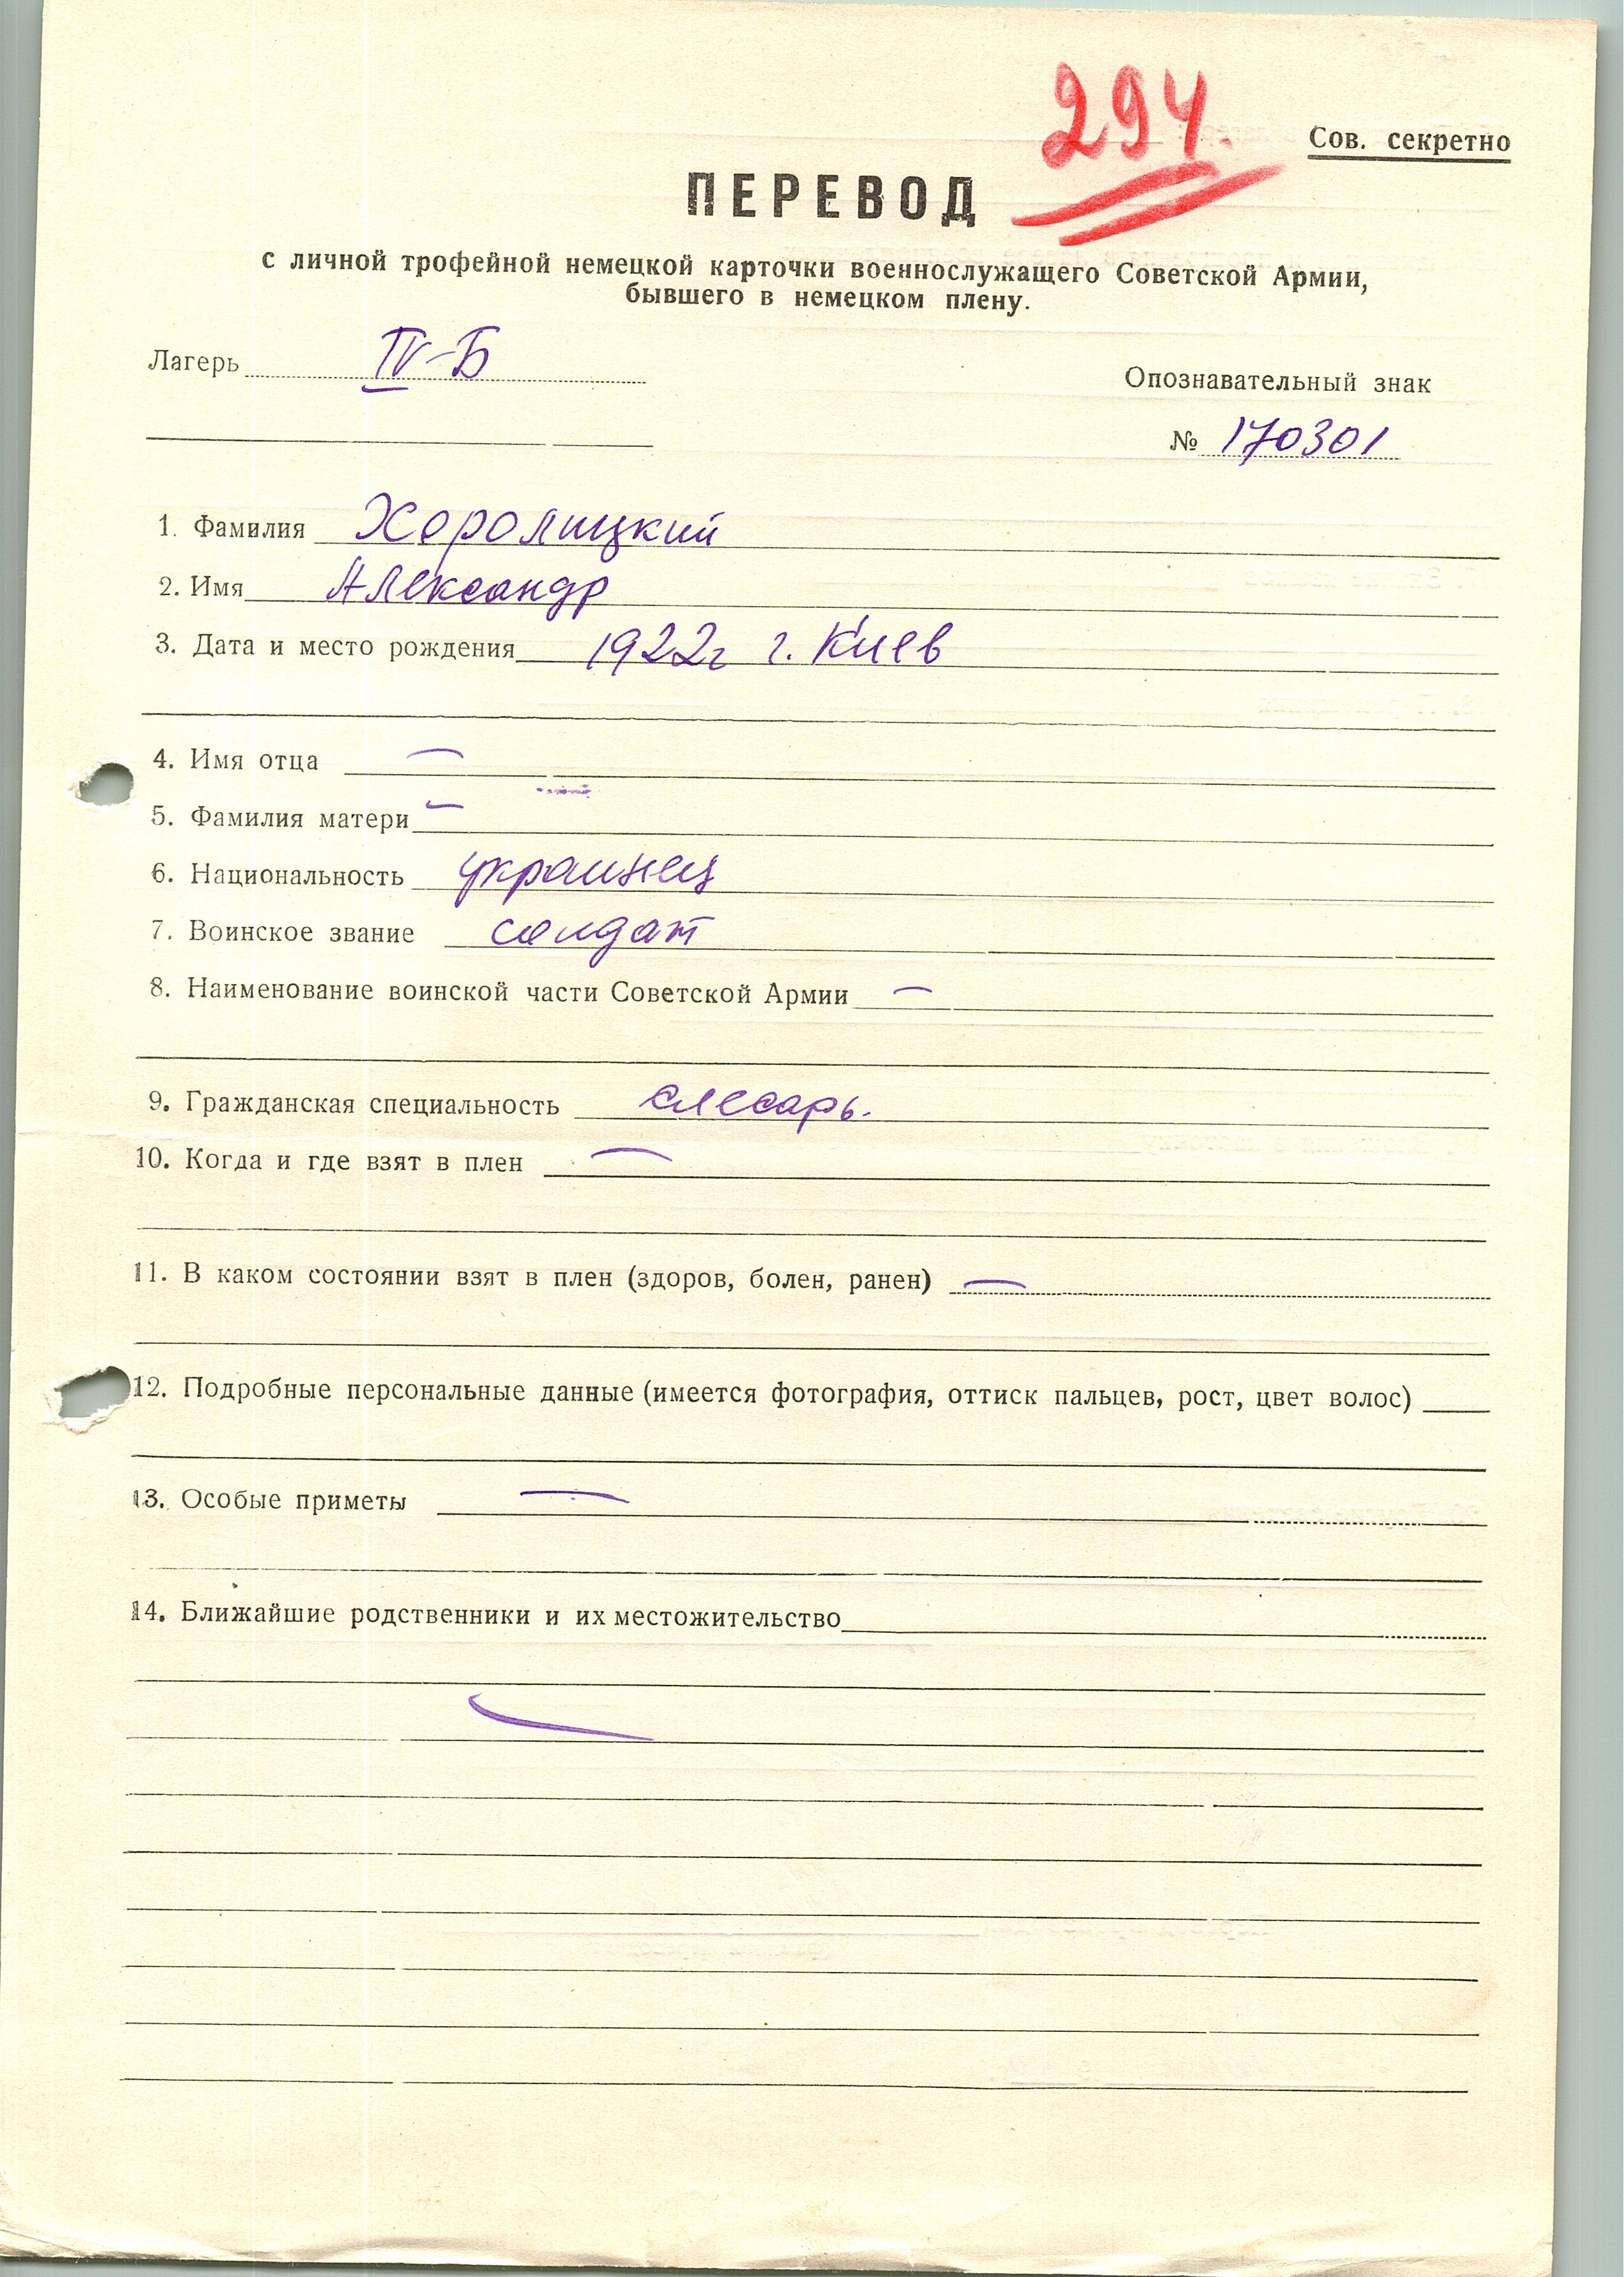 294.
Сов. секретно
ПЕРЕВОД
с личной трофейной немецкой карточки военнослужащего Советской Армии,
бывшего в немецком плену.
Лагерь IV-Б
Опознавательный знак
№ 170301
1. Фамилия Хоролицкий
2. Имя Александр
3. Дата и место рождения 1922г г. Киев
4. Имя отца —
5. Фамилия матери —
6. Национальность украинец
7. Воинское звание солдат
8. Наименование воинской части Советской Армии —
9. Гражданская специальность слесарь.
10. Когда и где взят в плен —
11. В каком состоянии взят в плен (здоров, болен, ранен) —
12. Подробные персональные данные (имеется фотография, оттиск пальцев, рост, цвет волос)
13. Особые приметы —
14. Ближайшие родственники и их местожительство
—